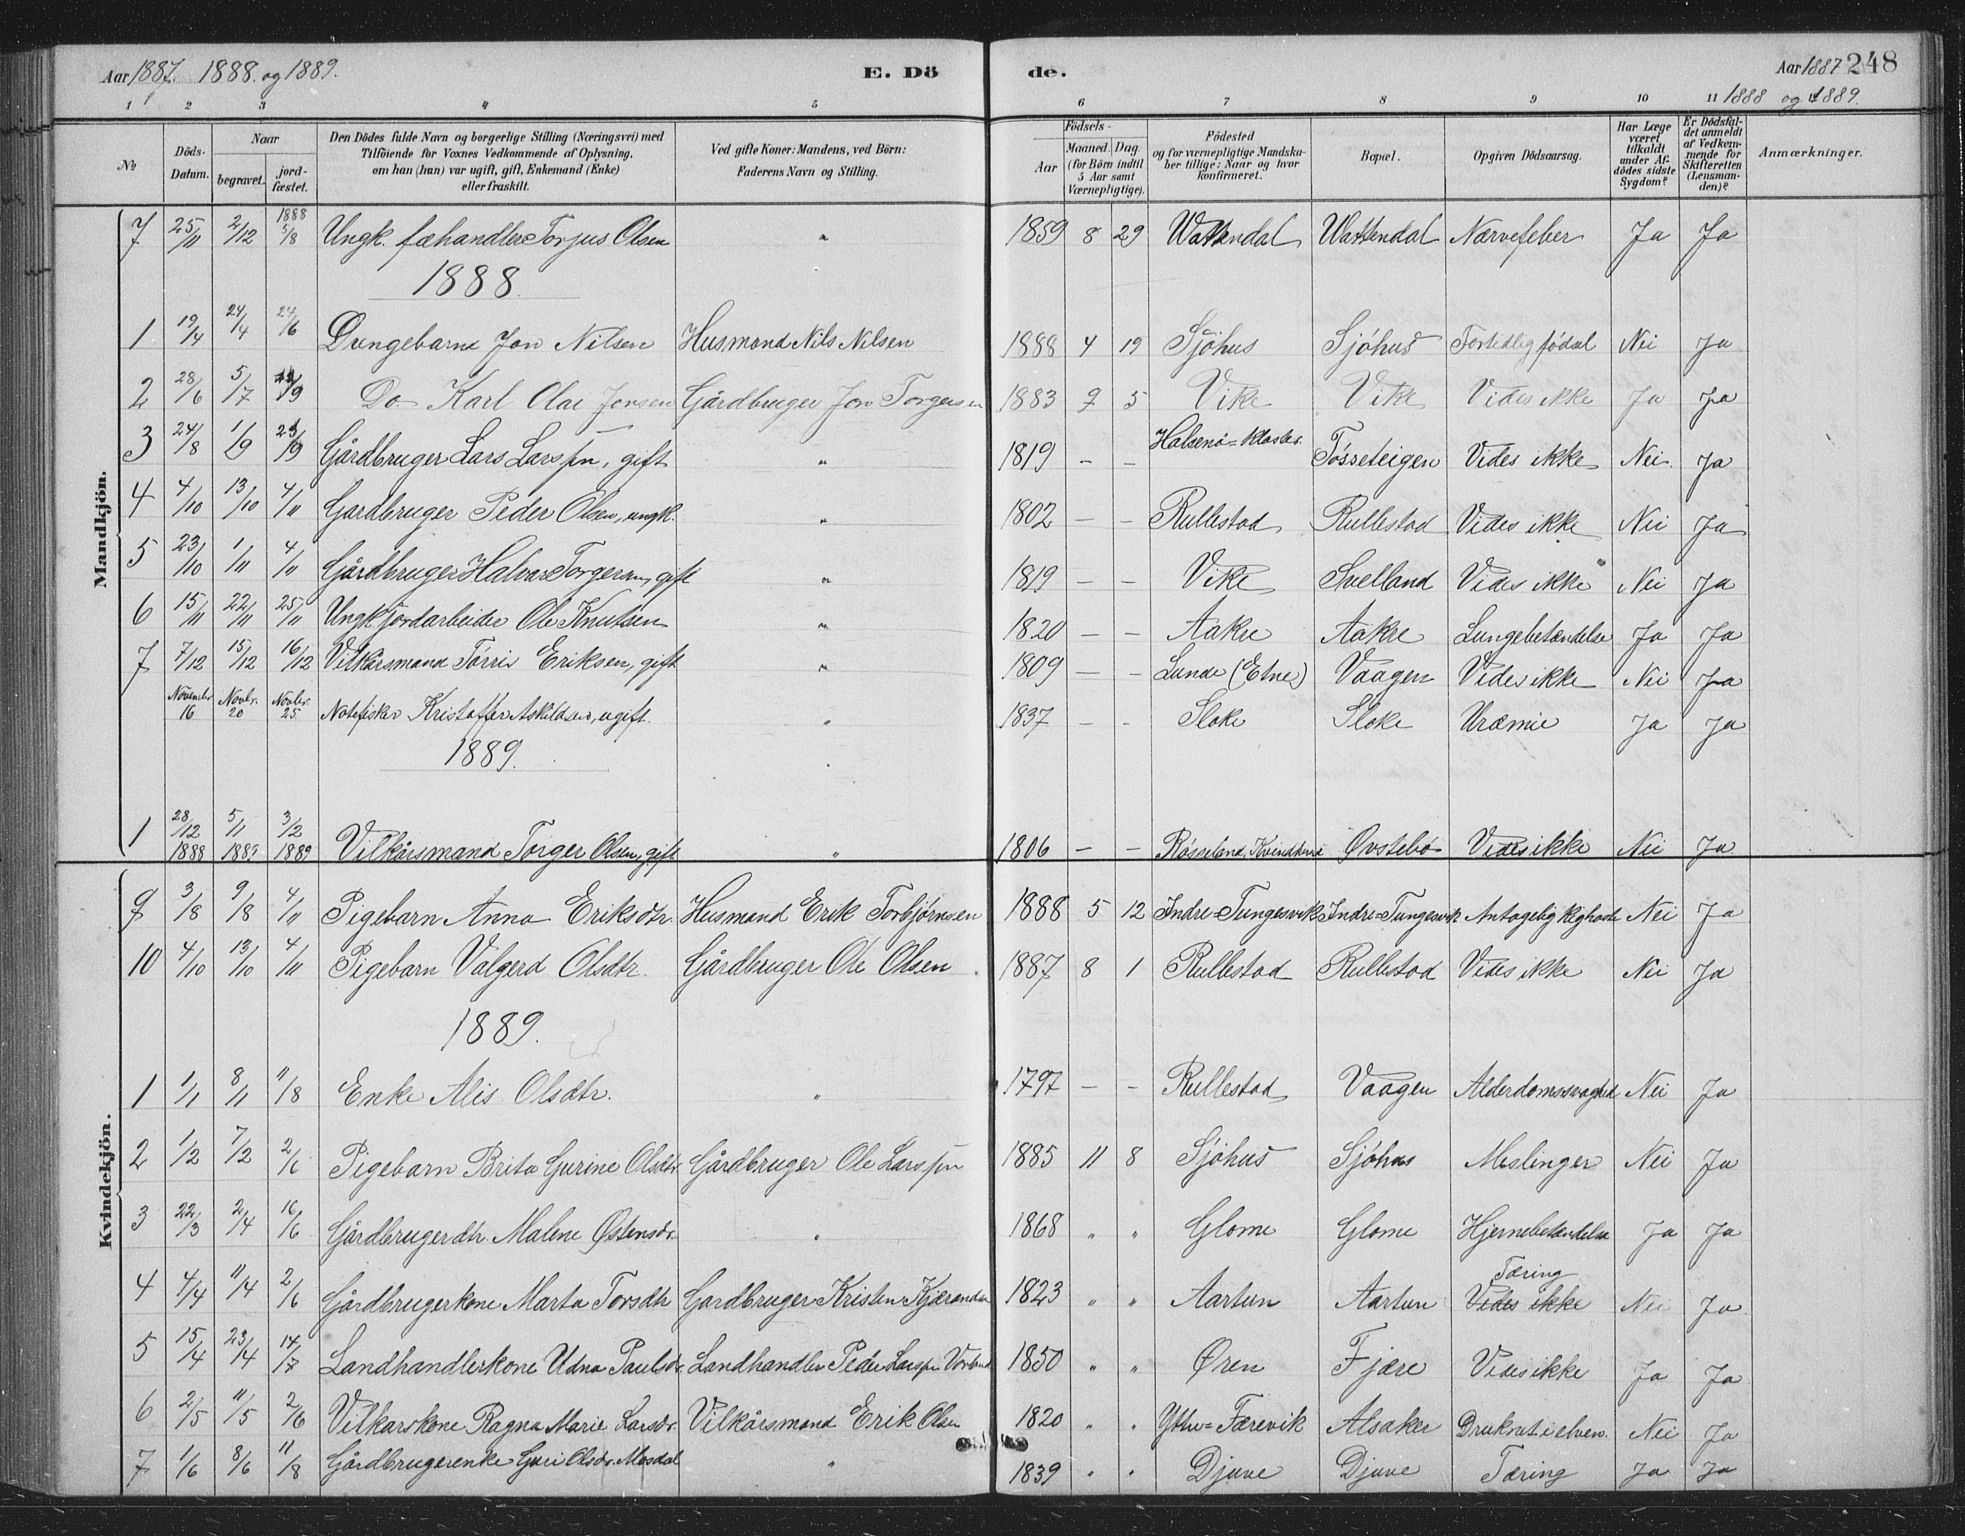 Aar 1887. 1888. og 1889. E. Dö de. Aar 1887 248
1888 og 1889.
1 2 3 4 5 6 7 8 9 10 11
No Döds-Datum. Naar begravet. jordfæstet. Den Dödes fulde Navn og borgerlige Stilling (Næringsvei) med Tilföiende for Voxnes Vedkommende af Oplysning, om han (hun) var ugift, gift, Enkemand (Enke) eller fraskilt. Ved gifte Koner: Mandens, ved Börn: Faderens Navn og Stilling. Födsels- Aar Maaned. Dag. (for Börn indtil 5 Aar samt Værnepligtige). Födested og for værnepligtige Mandskaber tillige: Naar og hvor konfirmeret. Bopæl. Opgiven Dödsaarsag. Har Læge været tilkaldt under Afdödes sidste Sygdom? Er Dödsfaldet anmeldt af Vedkommende for Skifteretten (Lensmanden)? Anmærkninger.
Mandkjön.
7 25/11 2/12 1888 5/8 Ungk. fæhandler Torjus Olsen " 1859 8 29 Wattendal Wattendal Nærvefeber Ja Ja
1888.
1 19/4 24/4 24/6 Drengebarn Jon Nilsen Husmand Nils Nilsen 1888 4 19 Sjöhus Sjöhus Fortidlig födsel Nei Ja
2 28/6 5/7 /9 Do Karl Olai Jonsen Gårdbruger Jon Torgersen 1883 9 5 Vike Vike Vides ikke Ja Ja
3 24/8 1/9 23/9 Gårdbruger Lars Larssen, gift " 1819 – – Halsnö-Kloster Tösseteigen Vides ikke Nei Ja
4 4/10 13/10 4/11 Gardbruger Peder Olsen, ungk. " 1802 – – Rullestad Rullestad Vides ikke Nei Ja
5 23/10 1/11 4/11 Gårdbruger Halvar Torgersen, gift " 1819 – – Vike Svelland Vides ikke Nei Ja
6 15/11 22/11 25/11 Ungk. jordarbeider Ole Knutsen " 1820 – – Aakre Aakre Lungebetændelse Ja Ja
7 7/12 15/12 16/12 Vilkårsmand Törris Eriksen, gift " 1809 – – Lunde (Etne) Vaagen Vides ikke Nei Ja
November 16 Novbr. 20 Novbr. 25 Notefisker Kristoffer Askildsen, ugift. " 1837 – – Sloke Sloke Uræmie Ja Ja
1889.
1 28/12 1888 5/1 1889 3/2 1889 Vilkårsmand Torger Olsen, gift " 1806 – – Rösseland, Kvindherred Övstebö Vides ikke Nei Ja
Kvindekjön.
9 3/8 9/8 4/11 Pigebarn Anna Eriksdtr. Husmand Erik Torbjörnsen 1888 5 12 Indre-Tungesvik Indre-Tungesvik Antagelig Kighoste Nei Ja
10 4/10 13/10 4/11 Pigebarn Valgerd Olsdtr. Gårdbruger Ole Olsen 1887 8 1 Rullestad Rullestad Vides ikke Nei Ja
1889.
1 1/1 8/1 11/8 Enke Alis Olsdtr. " 1797 – – Rullestad Vaagen Alderdomssvaghed Nei Ja
2 1/2 7/2 2/6 Pigebarn Brita Gurine Olsdtr. Gårdbruger Ole Larssen 1885 11 8 Sjöhus Sjöhus Meslinger Nei Ja
3 22/3 2/4 16/6 Gårdbrugerdtr. Malene Östensdr. " 1868 " " Glome Glome Hjernebetændelse Ja Ja
4 4/4 11/4 2/6 Gårdbrugerkone Marta Torsdtr Gardbruger Kristen Kjærandsen 1823 " " Aartun Aartun Tæring Vides ikke Nei Ja
5 15/4 23/4 14/7 Landhandlerkone Udna Paulsdr. Landhandler Peder Larssen 1850 " " Ören Fjære Vides ikke Ja Ja
6 2/5 11/5 2/6 Vilkårskone Ragna Marie Larsdr. Vilkårsmand Erik Olsen 1820 " " Ytre-Færevik Alsaker Druknet i elven. Nei Ja
7 1/6 8/6 11/8 Gårdbrugerenke Guri Olsdr. Mosdal " 1839 " " Djuve Djuve Tæring Ja Ja